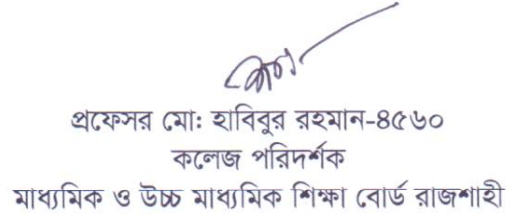 প্রফেসর মো: হাবিবুর রহমান-৪৫৬০
কলেজ পরিদর্শক
মাধ্যমিক ও উচ্চ মাধ্যমিক শিক্ষা বোর্ড রাজশাহী